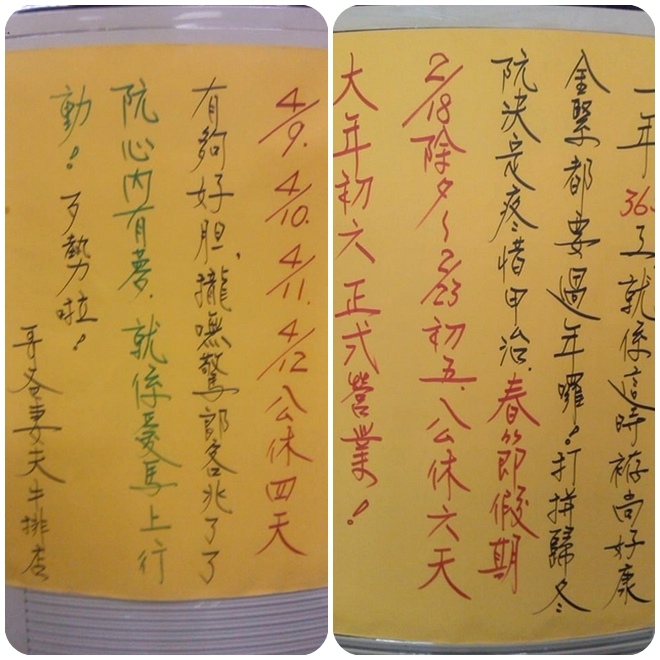 4/9. 4/10. 4/11. 4/12 公休四天
有夠好胆，攏嘸驚郎客兆了了
阮心內有夢，就係愛馬上行
動！歹勢啦！
牛排店
一年36
工就係這時袸尚好康
全緊都要過年囉！打拼歸冬
阮決定疼惜甲治，春節假期
2/18除夕～2/23初五，公休六天
大年初六正式營業！